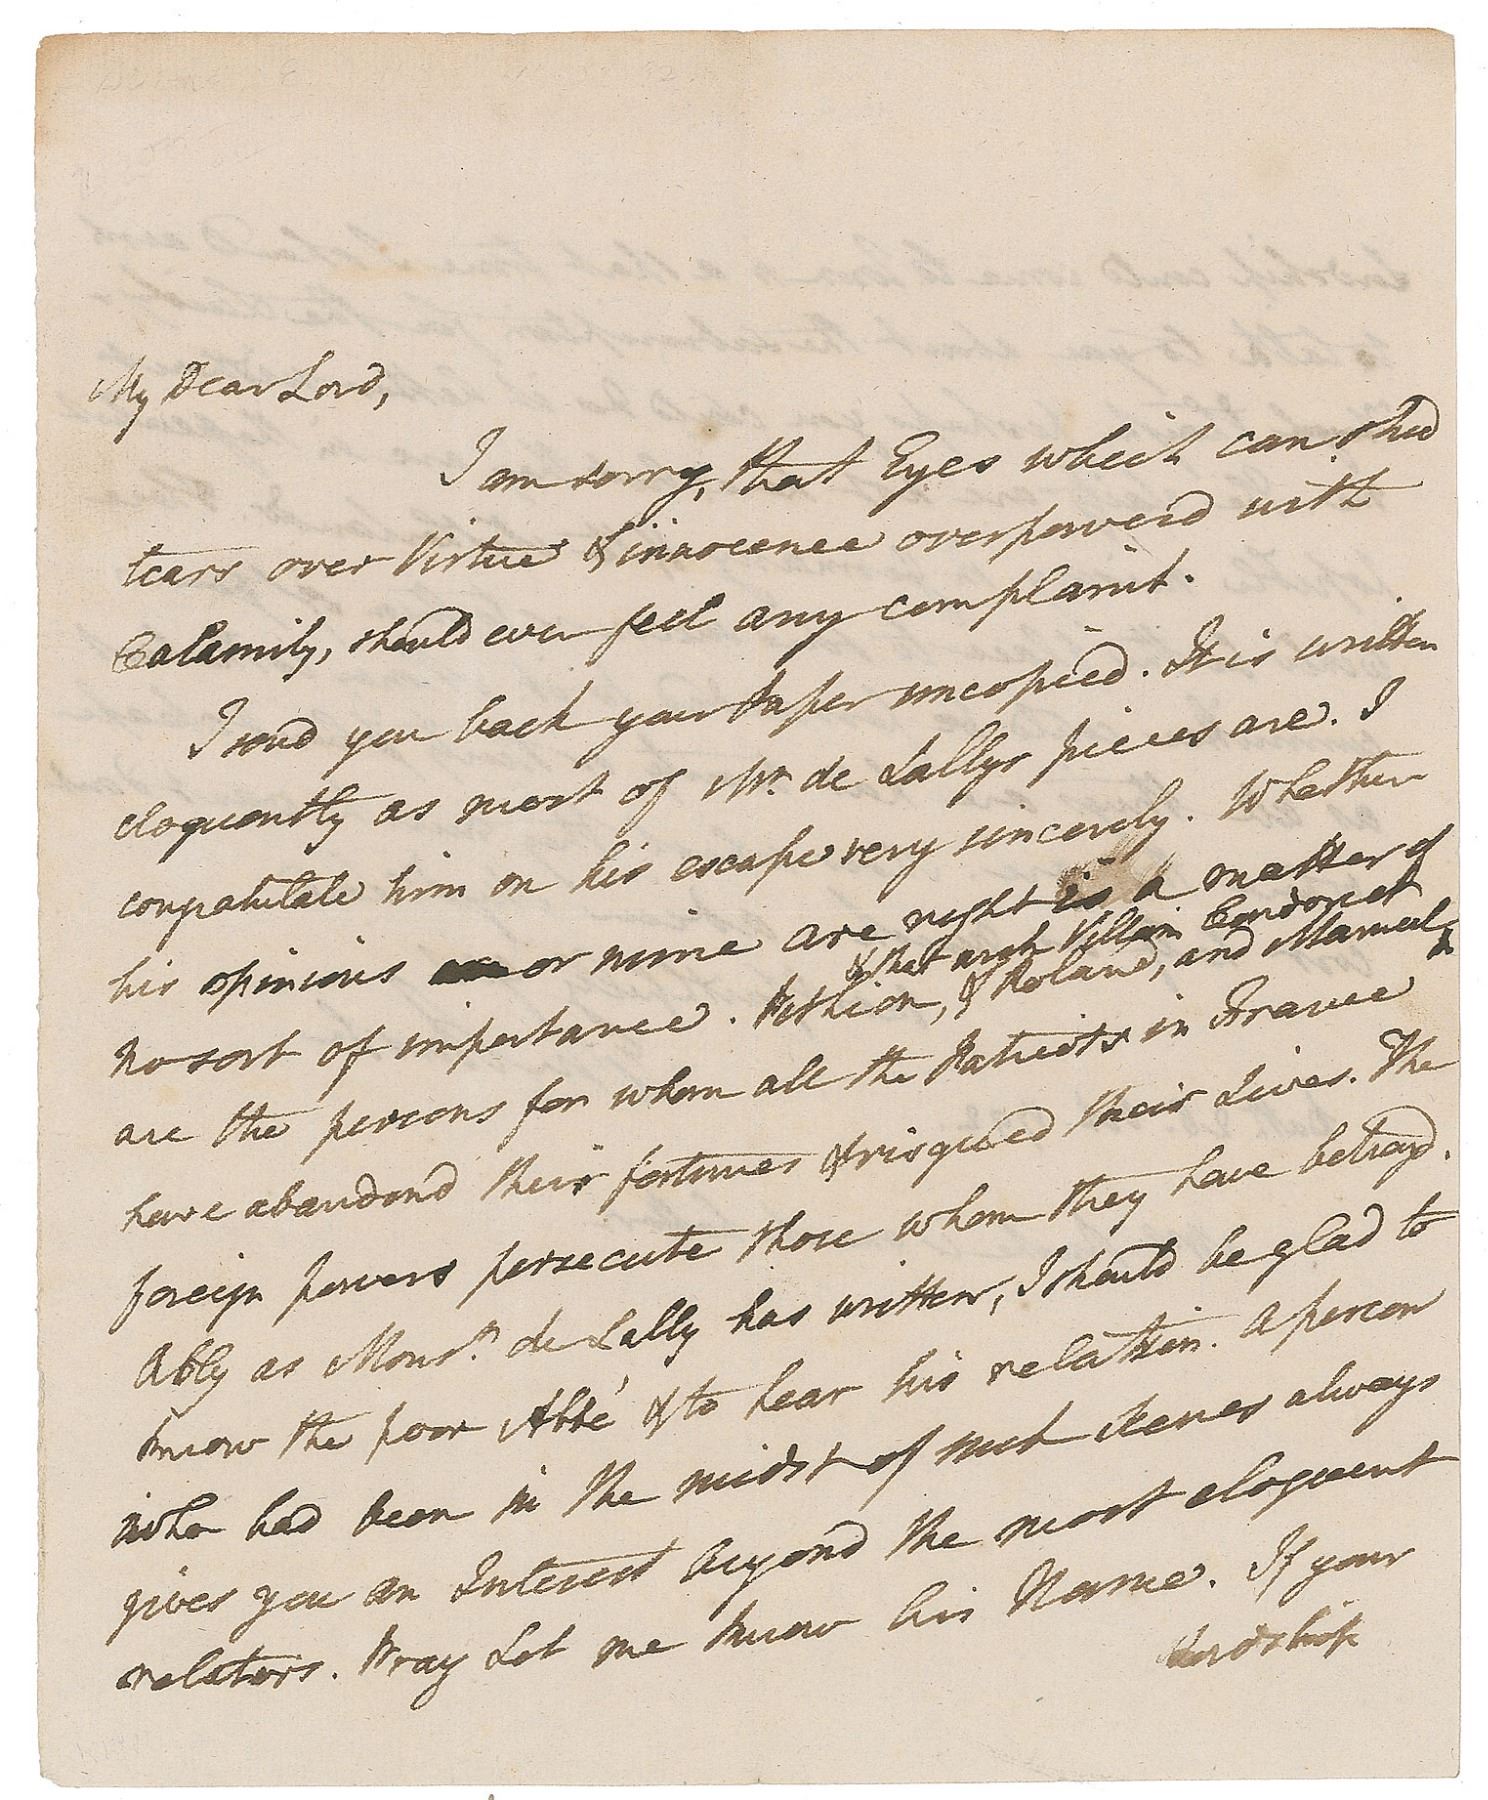 My Dear Lord,
I am sorry, that Eyes which can shed
tears over Virtue & innocence overpowerd with
Calamity, should ever feel any complaint.
I send you back your Paper uncopied. It is written
eloquently as most of Mr. de Lallys pieces are. I
congratulate him on his escape very sincerely. Whether
his opinions or mine are right is a matter of
& that arch Villain Condorcet
no sort of importance. Pethion, & Roland, and Manuel,
are the persons for whom all the Patriots in France
have abandond their fortunes & risqued their Lives. The
foreign powers persecute those whom they have betrayd.
Ably as Monsr. de Lally has written, I should be glad to
know the poor Abbé & to hear his relation. A person
who had been in the midst of such scenes always
gives you an Interest beyond the most eloquent
relators. Pray Let me know his Name. If your
Lordship